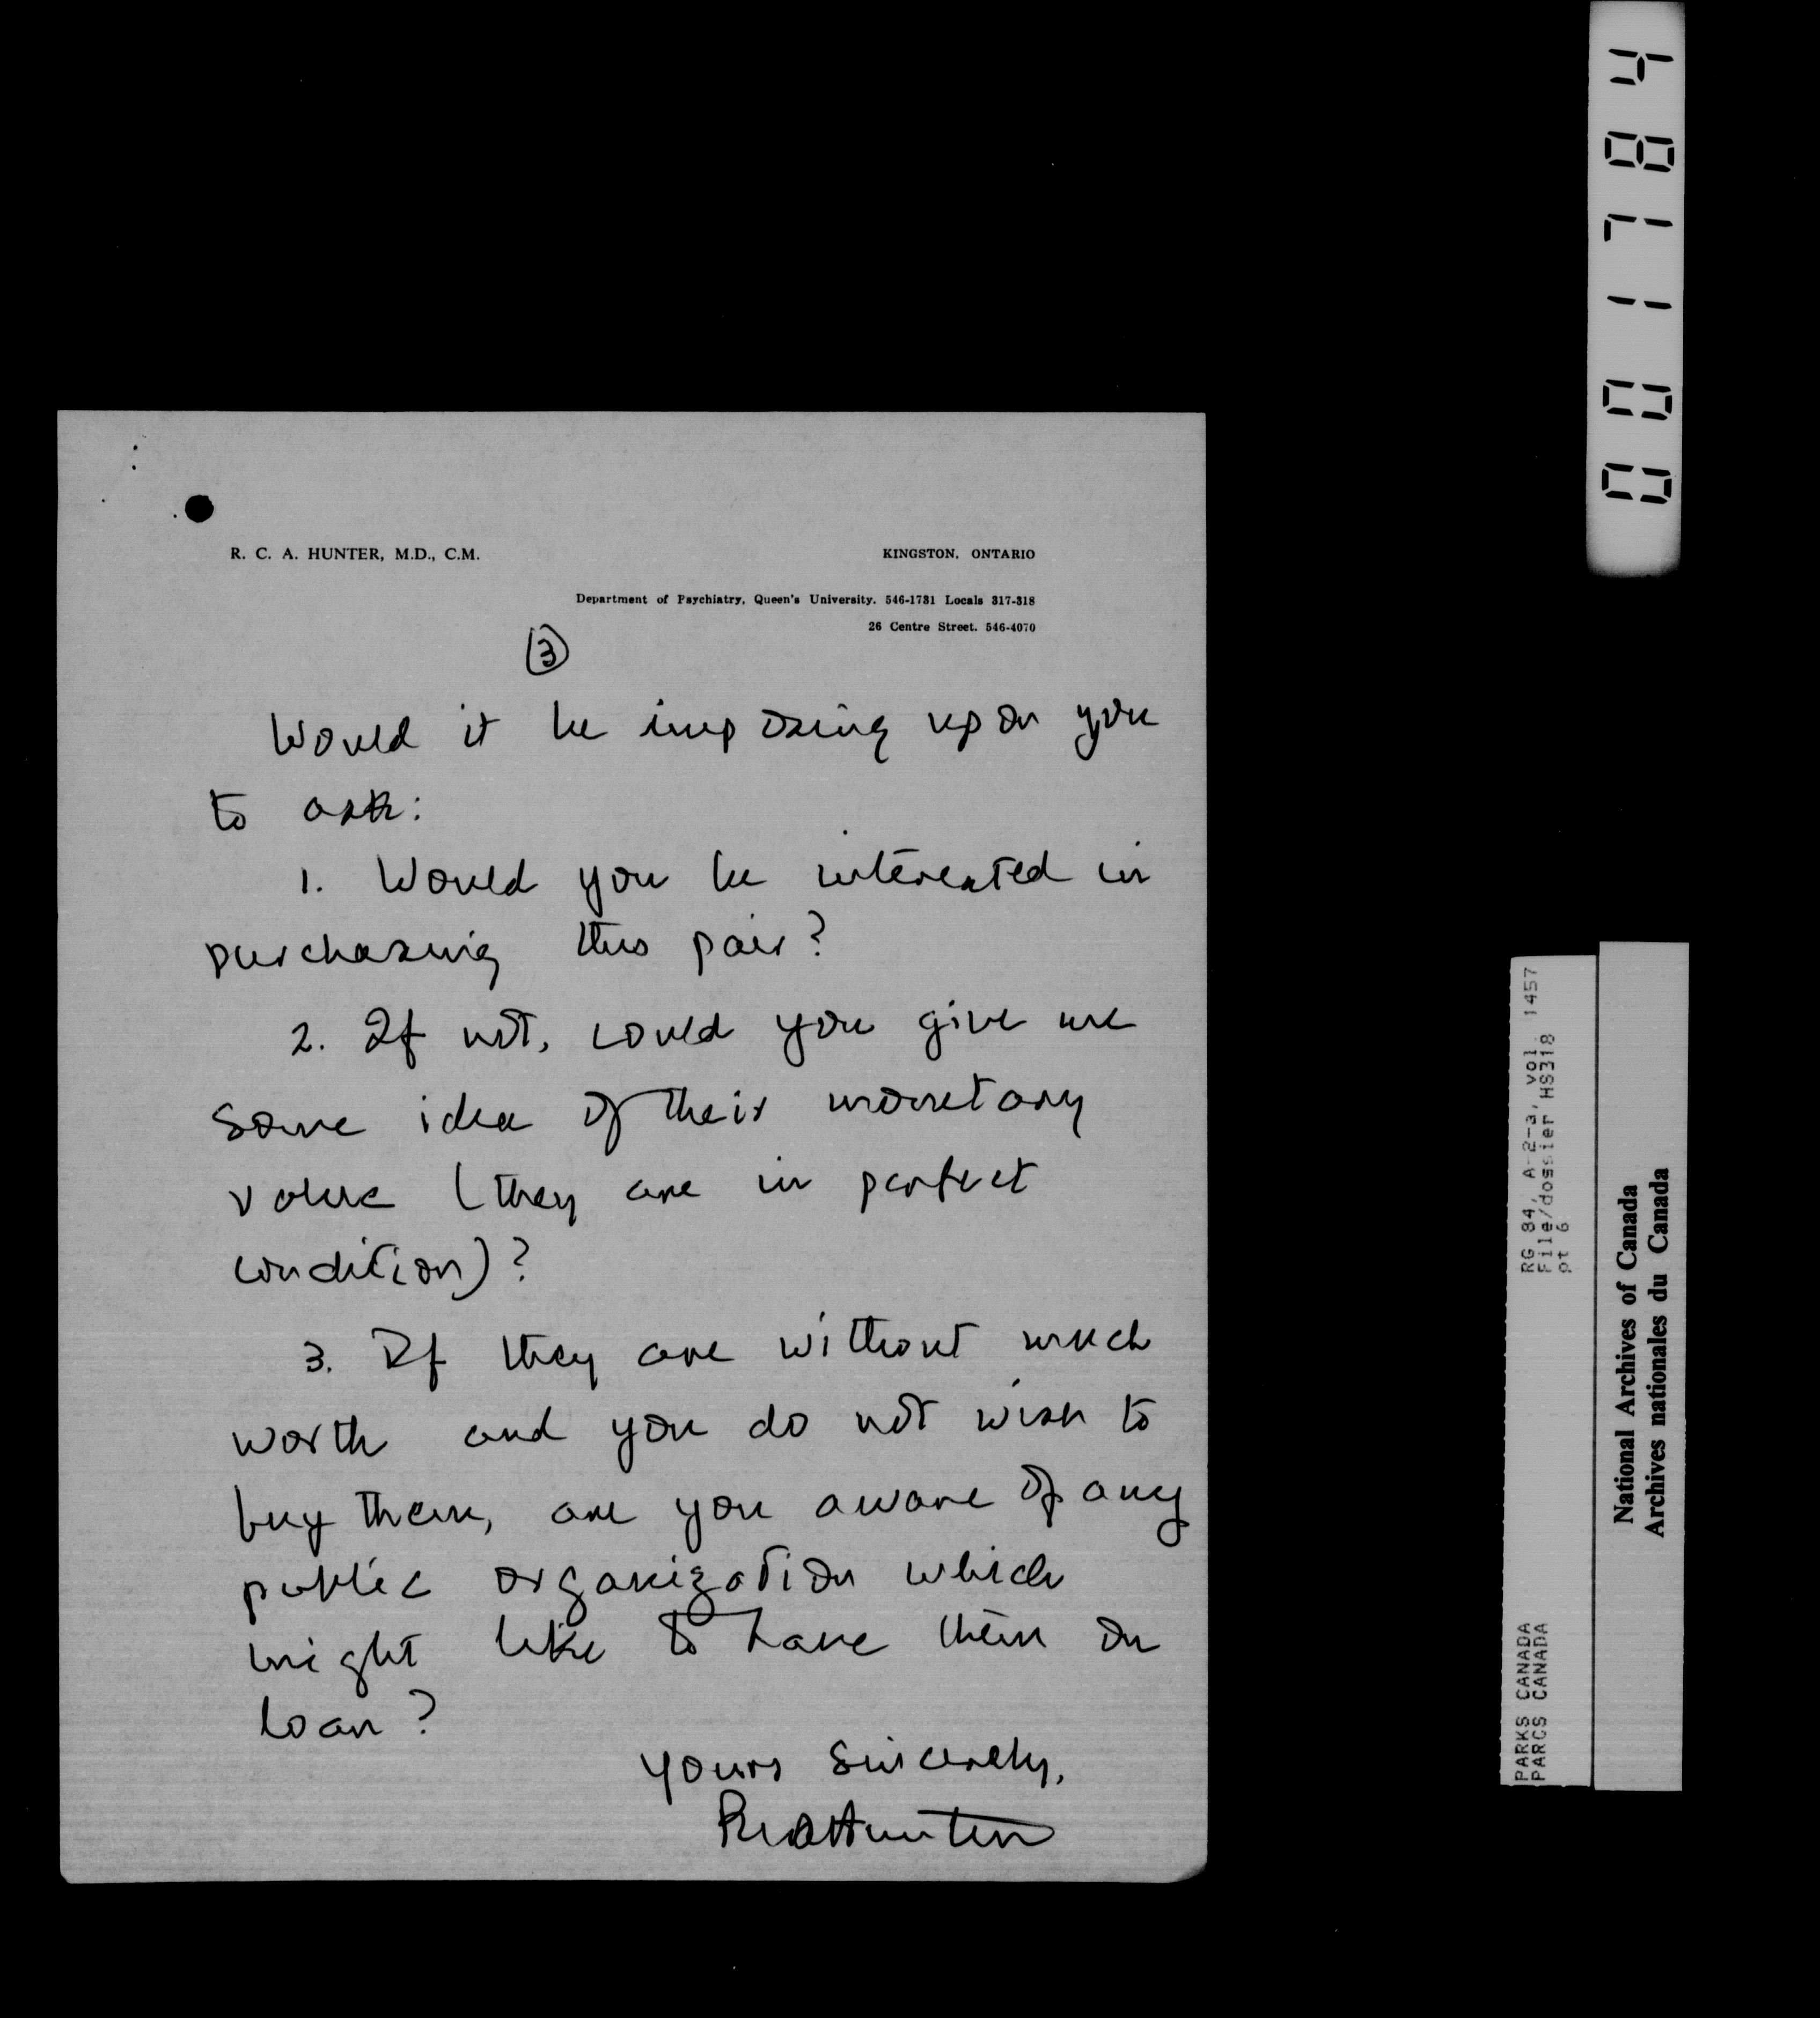 R. C. A. HUNTER, M.D., C.M.
KINGSTON, ONTARIO
Department of Psychiatry, Queen's University. 546-1731 Locals 317-318
26 Centre Street. 546-4070
3
Would it be imposing upon you
to ask:
1. Would you be interested in
purchasing this pair?
2. If not, could you give me
some idea of their monetary
value (they are in perfect
condition)?
3. If they are without much
worth and you do not wish to
buy them, are you aware of any
public organization which
might like to have them on
loan?
Yours sincerely,
RCAHunter
001784
RG 84, A-2-3, vol. 1457
File/dossier HS318
pt 6
PARKS CANADA
PARCS CANADA
National Archives of Canada
Archives nationales du Canada